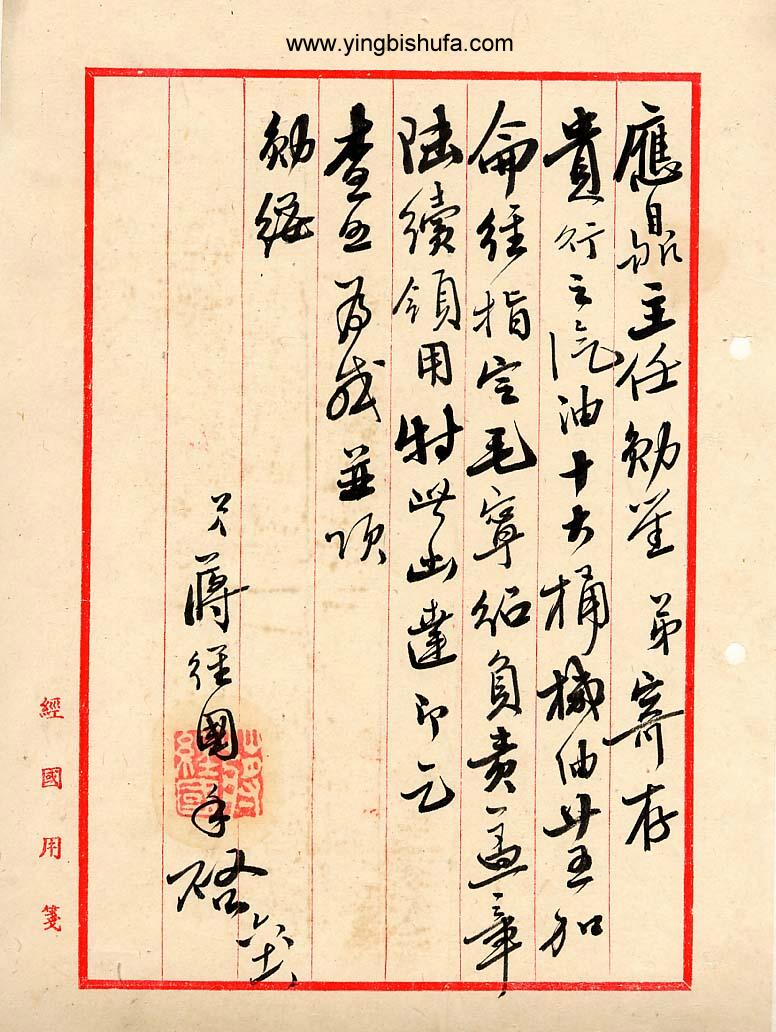 www.yingbishufa.com
應鼎主任勛鑒 弟寄存
貴行之汽油十大桶機油廿五加
侖經指定毛寧紹負責蓋章
陸續領用特此函達即乞
查照為感並頌
勛綏
弟蔣經國手啓
經國用箋